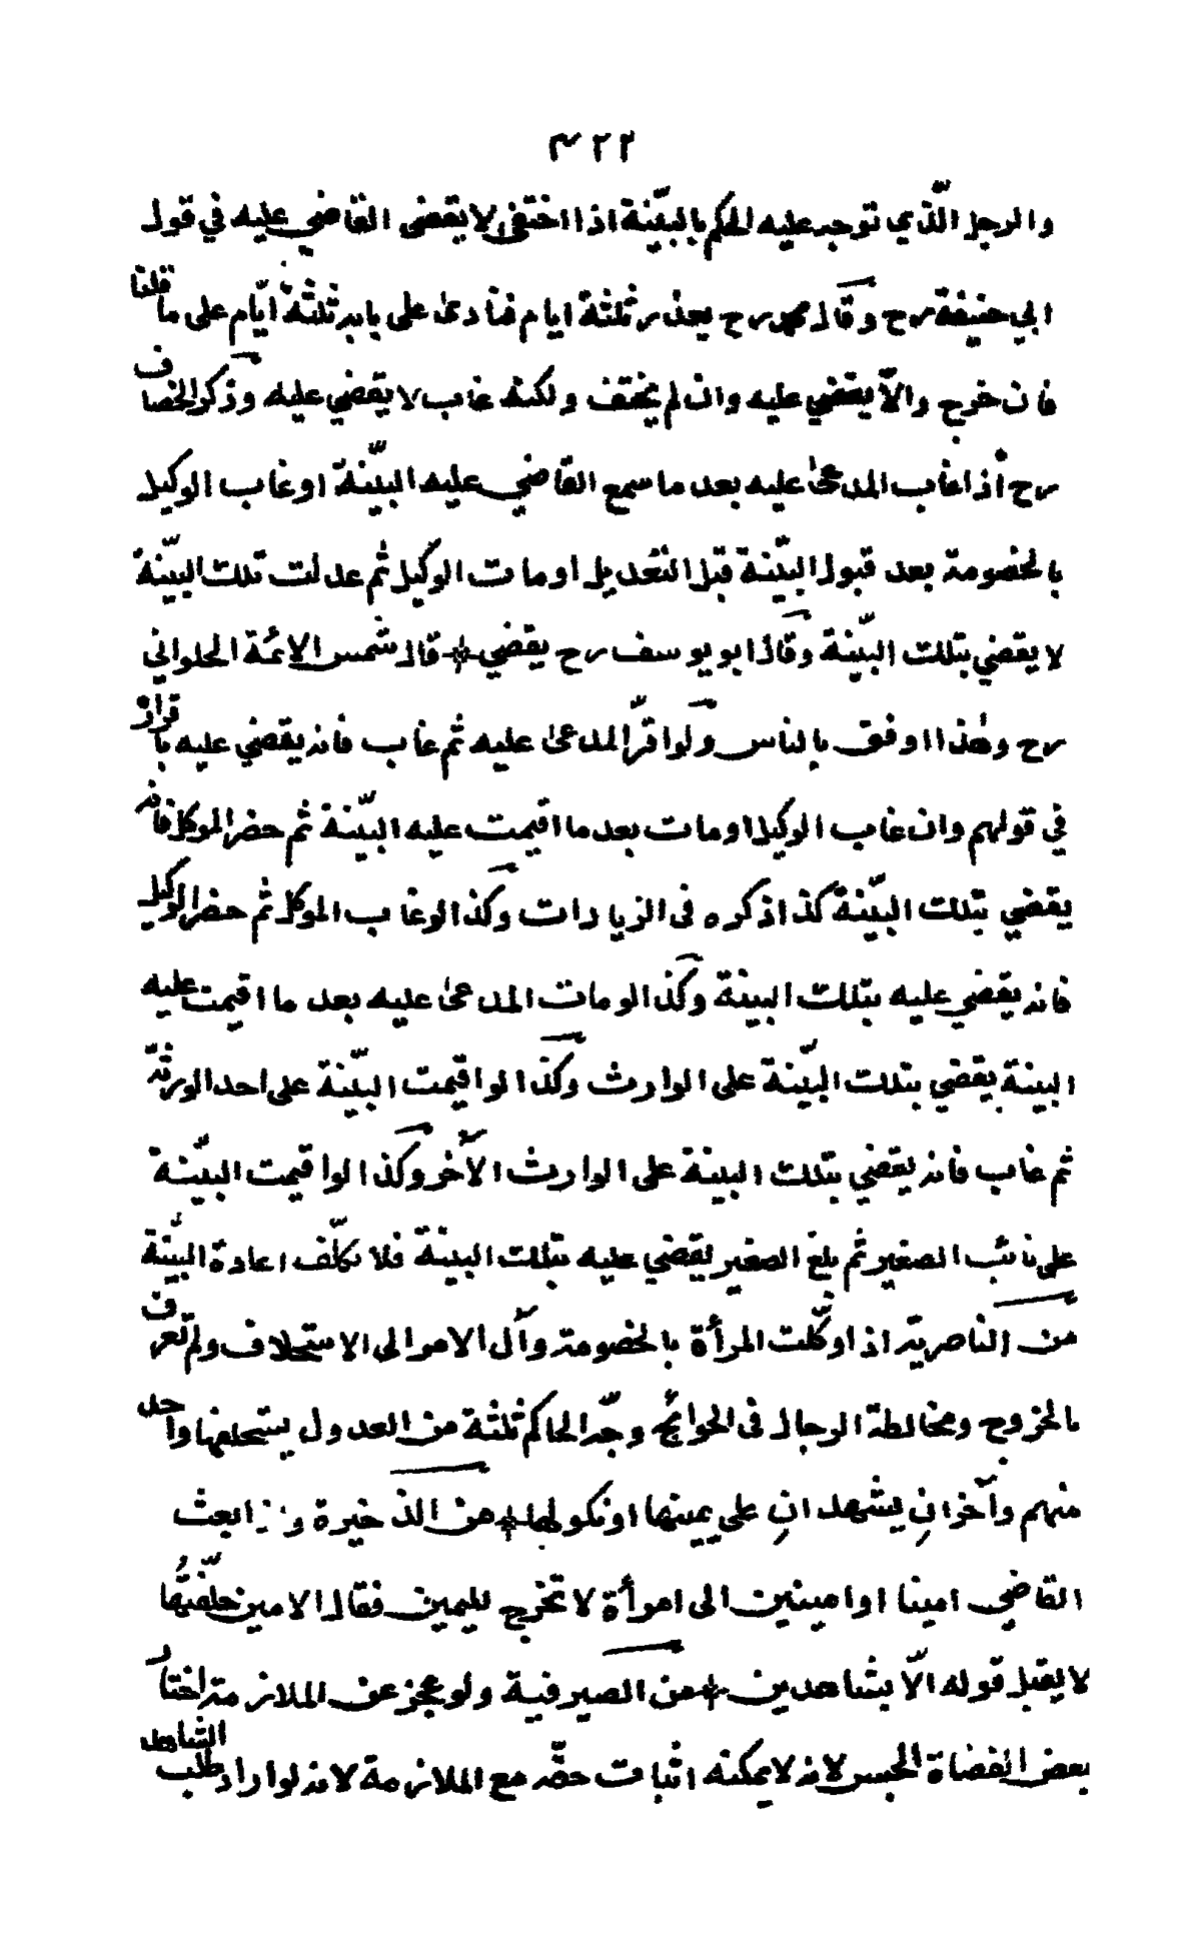 ٤٢٢
والرجل الّذي توجه عليه الحكم بالبيّنة اذا اختفى لا يقضى القاضي عليه في قول
ابي حنيفة رح وقال محمد رح يعذر ثلثة ايام فنادى على بابه ثلثة ايّام على ما قلنا
فان خرج والّا يقضي عليه وان لم يختف ولكنه غاب لا يقضي عليه وذكر الخصاف
رح اذا غاب المدعى عليه بعد ما سمع القاضي عليه البيّنة او غاب الوكيل
بالخصومة بعد قبول البيّنة قبل التعديل او مات الوكيل ثم عدلت تلك البيّنة
لا يقضي بتلك البيّنة وقال ابو يوسف رح يقضي * قال شمس الائمة الحلواني
رح وهذا اوفق بالناس ولو اقرّ المدعى عليه ثم غاب فانه يقضي عليه باقراره
في قولهم وان غاب الوكيل او مات بعد ما اقيمت عليه البيّنة ثم حضر الموكل فانه
يقضي بتلك البيّنة كذا ذكره فى الزيادات وكذا لو غاب الموكل ثم حضر الوكيل
فانه يقضي عليه بتلك البينة وكذا لو مات المدعى عليه بعد ما اقيمت عليه
البينة يقضي بتلك البيّنة على الوارث وكذا لو اقيمت البيّنة على احد الورثة
ثم غاب فانه يقضي بتلك البينة على الوارث الآخر وكذا لو اقيمت البيّنة
على نائب الصغير ثم بلغ الصغير يقضي عليه بتلك البينة فلا يكلّف اعادة البيّنة
من الناصرية اذا وكّلت المرأة بالخصومة وآل الامر الى الاستحلاف ولم تعرف
بالخروج ومخالطة الرجال فى الحوائج وجّه الحاكم ثلثة من العدول يستحلفها واحد
منهم وآخرانِ يشهدانِ على يمينها او نكولها * من الذخيرة واذا بعث
القاضي امينا او امينين الى امرأة لا تخرج لليمين فقال الامين حلّفتُها
لا يقبل قوله الّا بشاهدين * من الصيرفية ولو عجز عن الملازمة اختار
بعض القضاة الحبس لانه لا يمكنه اثبات حقّه مع الملازمة لانه لو اراد طلب الشاهد